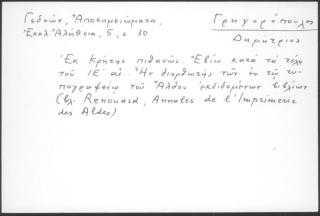 Γεδεών, Ἀποσημειώματα,
Ἐκκλ. Ἀλήθεια, 5, σ. 30
Γρηγορόπουλος
Δημήτριος
Ἐκ Κρήτης πιθανῶς. Ἔβίω κατὰ τὰ τέλη
τοῦ ΙΕ΄ αἰ.. Ἦν διορθωτὴς τῶν ἐν τῷ τυ-
πογραφείῳ τοῦ Ἄλδου ἐκδιδομένων βιβλίων
(βλ. Renouard, Annales de l'Imprimerie
des Aldes)